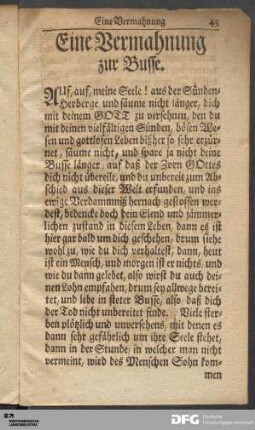 Eine Vermahnung 45
Eine Vermahnung
zur Busse.
AUf, auf, meine Seele! aus der Sünden-
Herberge, und säume nicht länger, dich
mit deinem GOTT zu versehnen, den du
mit deinen vielfältigen Sünden, bösen We-
sen und gottlosen Leben bißher so sehr erzür-
net, säume nicht, und spare ja nicht deine
Busse länger, auf daß der Zorn GOttes
dich nicht übereile, und du unbereit zum Ab-
schied aus dieser Welt erfunden, und ins
ewige Verdammniß hernach gestossen wer-
dest, bedencke doch dein Elend und jämmer-
lichen zustand in diesem Leben, dann es ist
hier gar bald um dich geschehen, drum siehe
wohl zu, wie du dich verhaltest, dann, heut
ist ein Mensch, und morgen ist er nichts, und
wie du dann gelebet, also wirst du auch dei-
nen Lohn empfahen, drum sey allwege berei-
tet, und lebe in steter Busse, also, daß dich
der Tod nicht unbereitet finde. Viele ster-
ben plötzlich und unversehens, mit denen es
dann sehr gefährlich um ihre Seele stehet,
dann in der Stunde, in welcher man nicht
vermeint, wird des Menschen Sohn kom-
men
DFG Deutsche
Forschungsgemeinschaft